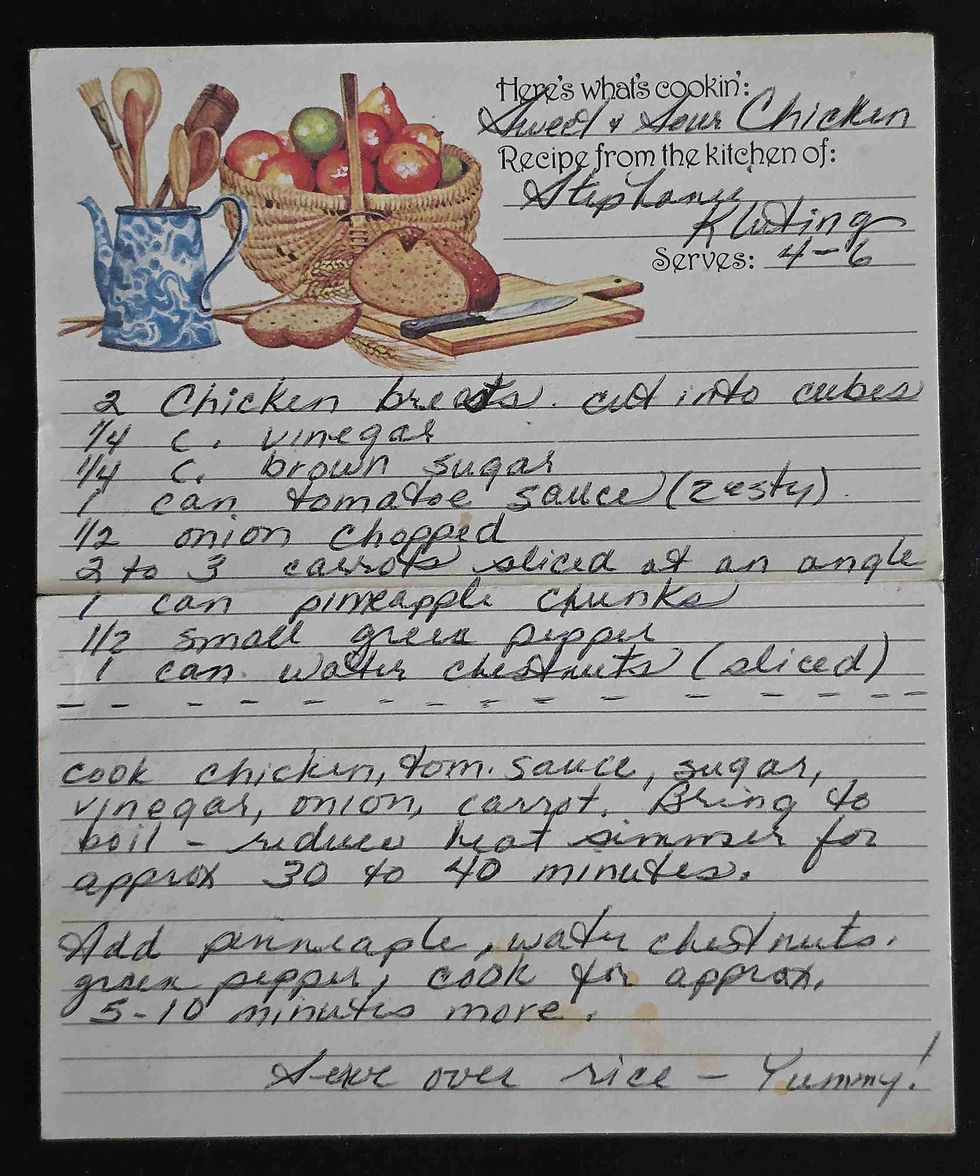 Here's what's cookin':
Sweet & Sour Chicken
Recipe from the kitchen of:
Stephanie
Kluting
Serves: 4-6
2 Chicken breasts. cut into cubes
1/4 c. vinegar
1/4 c. brown sugar
1 can tomatoe sauce (zesty).
1/2 onion chopped
2 to 3 carrots sliced at an angle
1 can pineapple chunks
1/2 small green pepper
1 can. water chestnuts (sliced)
cook chicken, tom. sauce, sugar,
vinegar, onion, carrot. Bring to
boil - reduce heat simmer for
approx 30 to 40 minutes.
Add pinneaple, water chestnuts.
green pepper, cook for approx.
5-10 minutes more.
Serve over rice - Yummy!